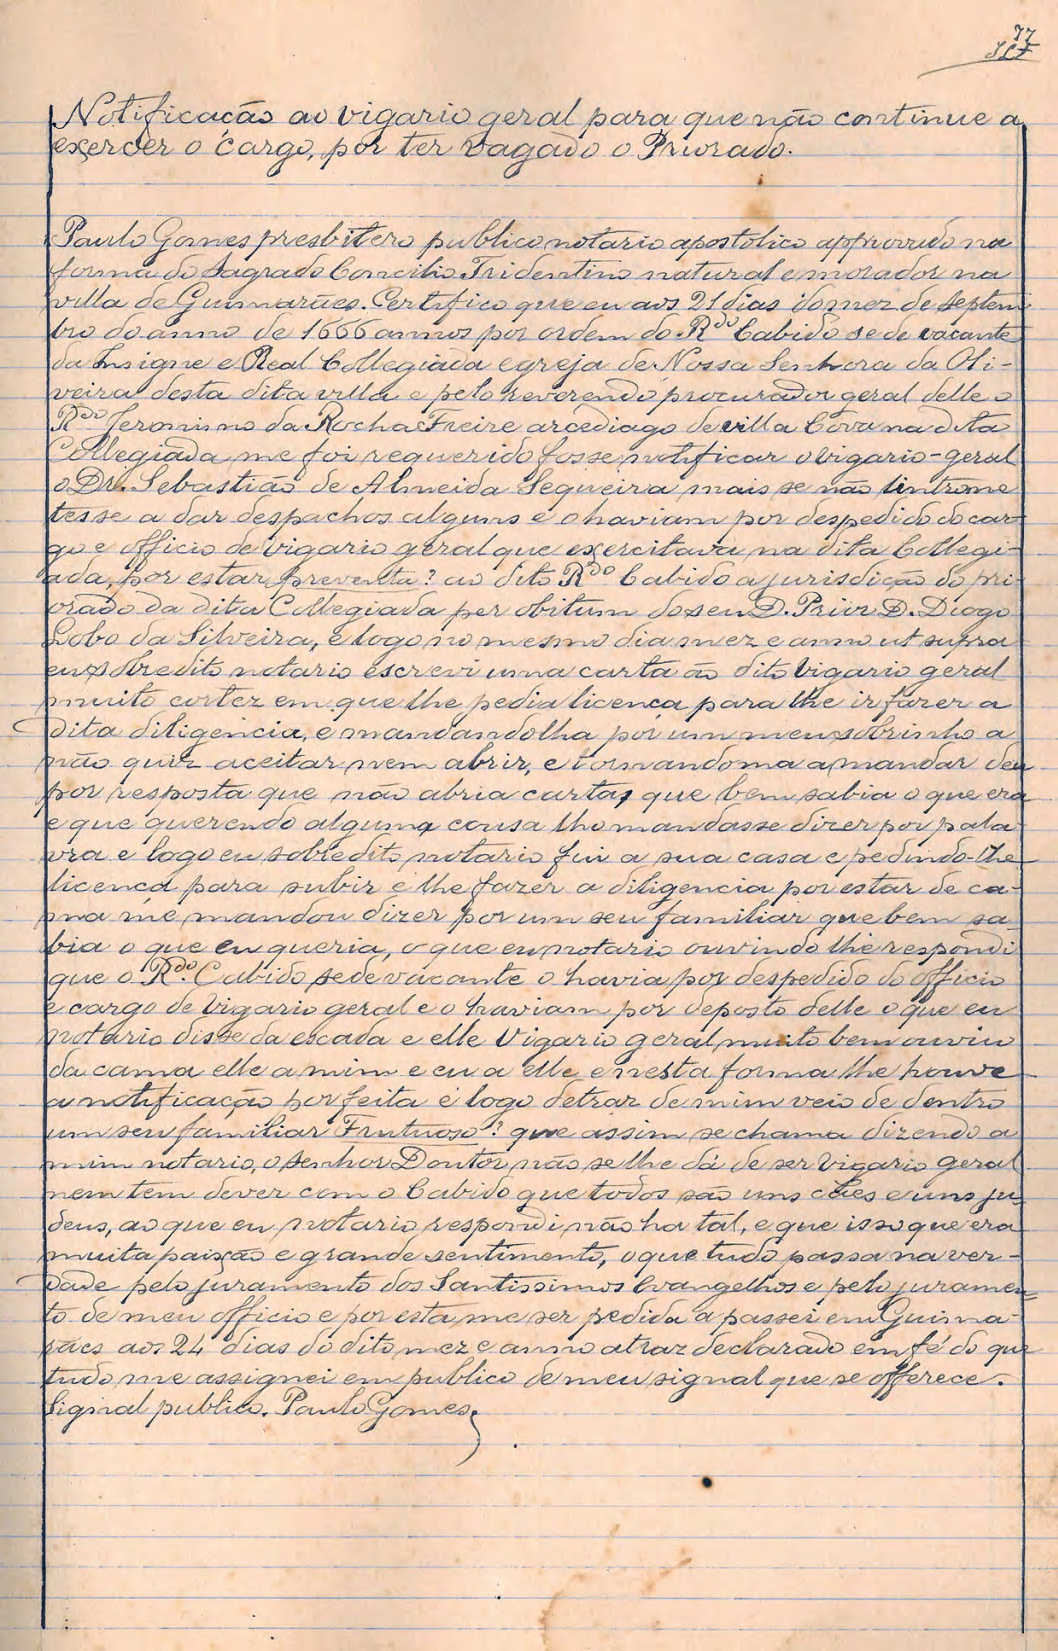 77
Notificação ao vigario geral para que não continue a
exercer o cargo, por ter vagado o Priorado.
Paulo Gomes presbitero publico notario apostolico approvado na
forma do Sagrado Concilio Tridentino natural e morador na
villa de Guimarães. Certifico que eu aos 21 dias do mez de septem
bro do anno de 1666 annos por ordem do R.do Cabido sede vacante
da Insigne e Real Collegiada egreja de Nossa Senhora da Oli-
veira desta dita villa e pelo reverendo procurador geral delle o
R.do Jeronimo da Rocha Freire arcediago de villa Cova na dita
Collegiada me foi requerido fosse notificar o vigario-geral
o Dr. Sebastião de Almeida Sequeira mais se não introme
tesse a dar despachos alguns e o haviam por despedido do car-
go e officio de vigario geral que exercitava na dita Collegi-
ada, por estar preventa? ao dito R.do Cabido a jurisdição do pri-
orado da dita Collegiada per obitum do seu D. Prior D. Diogo
Lobo da Silveira, e logo no mesmo dia mez e anno ut supra
eu sobredito notario escrevi uma carta ao dito Vigario geral
muito cortez em que lhe pedia licença para lhe ir fazer a
dita diligencia, e mandandolha por um meu sobrinho a
não quiz aceitar nem abrir, e tornandoma a mandar deu
por resposta que não abria cartas que bem sabia o que era
e que querendo alguma cousa lho mandasse dizer por pala
vra e logo eu sobredito notario fui a sua casa e pedindo-lhe
licença para subir e lhe fazer a diligencia por estar de ca-
ma me mandou dizer por um seu familiar que bem sa
bia o que eu queria, o que eu notario ouvindo lhe respondi
que o R.do Cabido sede vacante o havia por despedido do officio
e cargo de vigario geral e o haviam por deposto delle o que eu
notario disse da escada e elle Vigario geral muito bem ouviu
da cama elle a mim e eu a elle e nesta forma lhe houve
a notificação por feita e logo detraz de mim veio de dentro
um seu familiar Frutuoso? que assim se chama dizendo a
mim notario, o Senhor Doutor não se lhe dá de ser Vigario geral
nem tem dever com o Cabido que todos são uns cães e uns ju-
deus, ao que eu notario respondi não ha tal, e que isso que era
muita paixão e grande sentimento, o que tudo passa na ver-
dade pelo juramento dos Santissimos Evangelhos e pelo juramen
to de meu officio e por esta me ser pedida a passei em Guima-
rães aos 24 dias do dito mez e anno atraz declarado em fé do que
tudo me assignei em publico de meu signal que se offerece.
Signal publico. Paulo Gomes